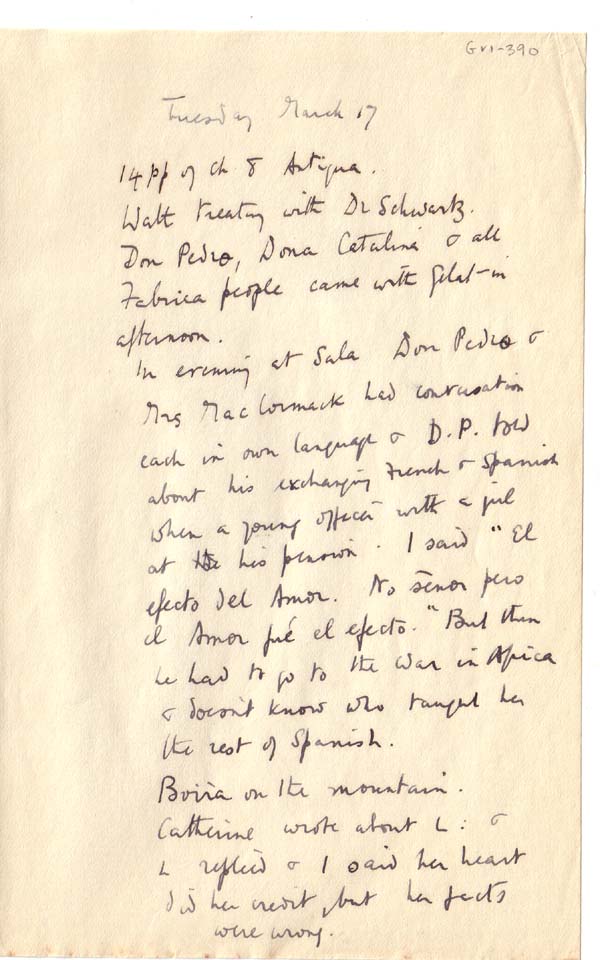 GVI-390
Tuesday March 17
14 pp of Ch 8 Antigua.
Walt treating with Dr Schwartz.
Don Pedro, Dona Catalina & all
Fabrica people came with Gelat in
afternoon.
In evening at Sala Don Pedro &
Mrs MacCormack had conversation
each in own language & D.P. told
about his exchanging French & Spanish
when a young officer with a girl
at his pension. I said "El
efecto del Amor. No señor pero
el Amor fué el efecto." But then
he had to go to the war in Africa
& doesn't know who taught her
the rest of Spanish.
Boira on the mountain.
Catherine wrote about L: &
L replied & I said her heart
did her credit, but her facts
were wrong.